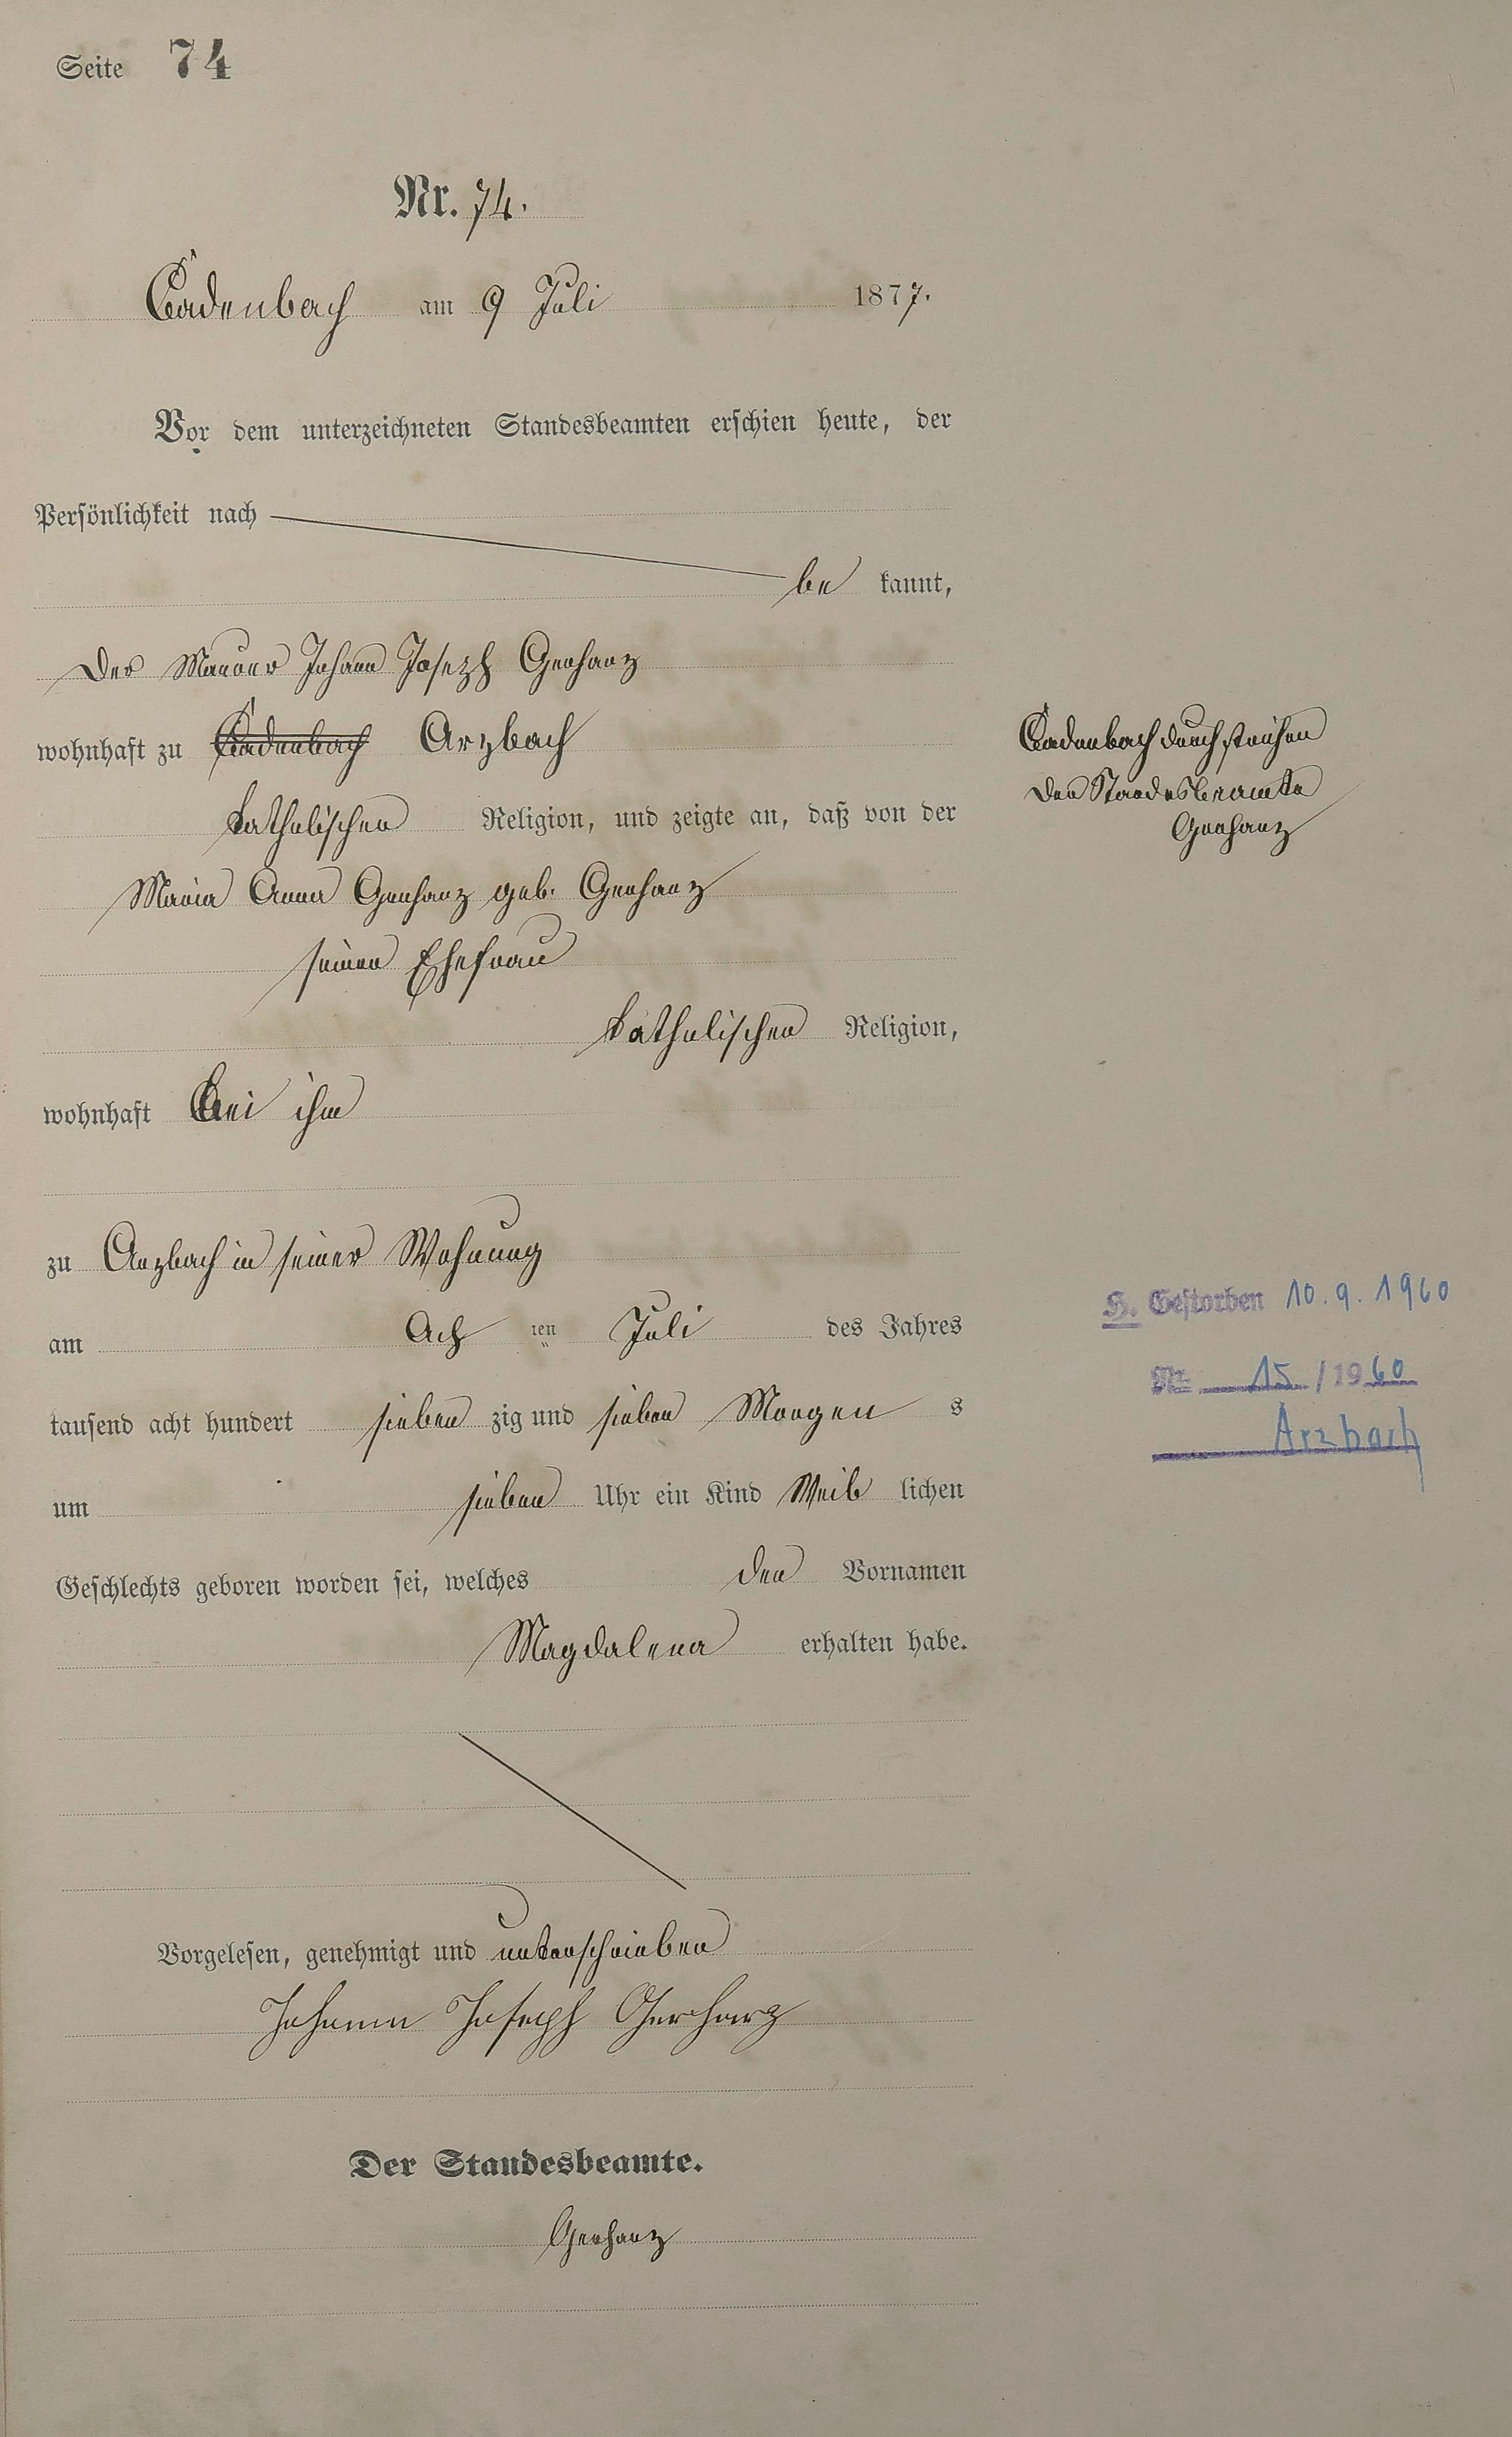 Seite 74
Nr. 74.
Cadenbach am 9 Juli 1877.
Vor dem unterzeichneten Standesbeamten erschien heute, der
Persönlichkeit nach
be kannt,
der Maurer Johann Joseph Gerharz
wohnhaft zu Cadenbach Arzbach
katholischer Religion, und zeigte an, daß von der
Maria Anna Gerharz geb. Gerharz
seiner Ehefrau
katholischer Religion,
wohnhaft bei ihm
zu Arzbach in seiner Wohnung
am Ach ten Juli des Jahres
tausend acht hundert sieben zig und sieben Morgen s
um sieben Uhr ein Kind Weib lichen
Geschlechts geboren worden sei, welches den Vornamen
Magdalena erhalten habe.
Vorgelesen, genehmigt und unterschrieben
Johann Joseph Gerharz
Der Standesbeamte.
Gerharz
Cadenbach durchstrichen
Der Standesbeamte
Gerharz
H. Gestorben 10.9.1960
Nr. 15 / 1960
Arzbach